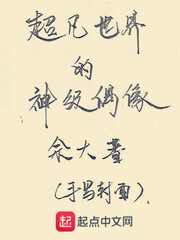 超凡世界
的
神级偶像
大
(手写封面)
起 起点中文网